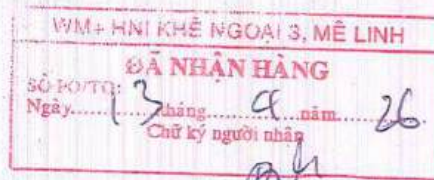 WM+ HNI KHÊ NGOẠI 3, MÊ LINH
ĐÃ NHẬN HÀNG
SỐ PO/TO:
Ngày 13 tháng 4 năm 26
Chữ ký người nhận